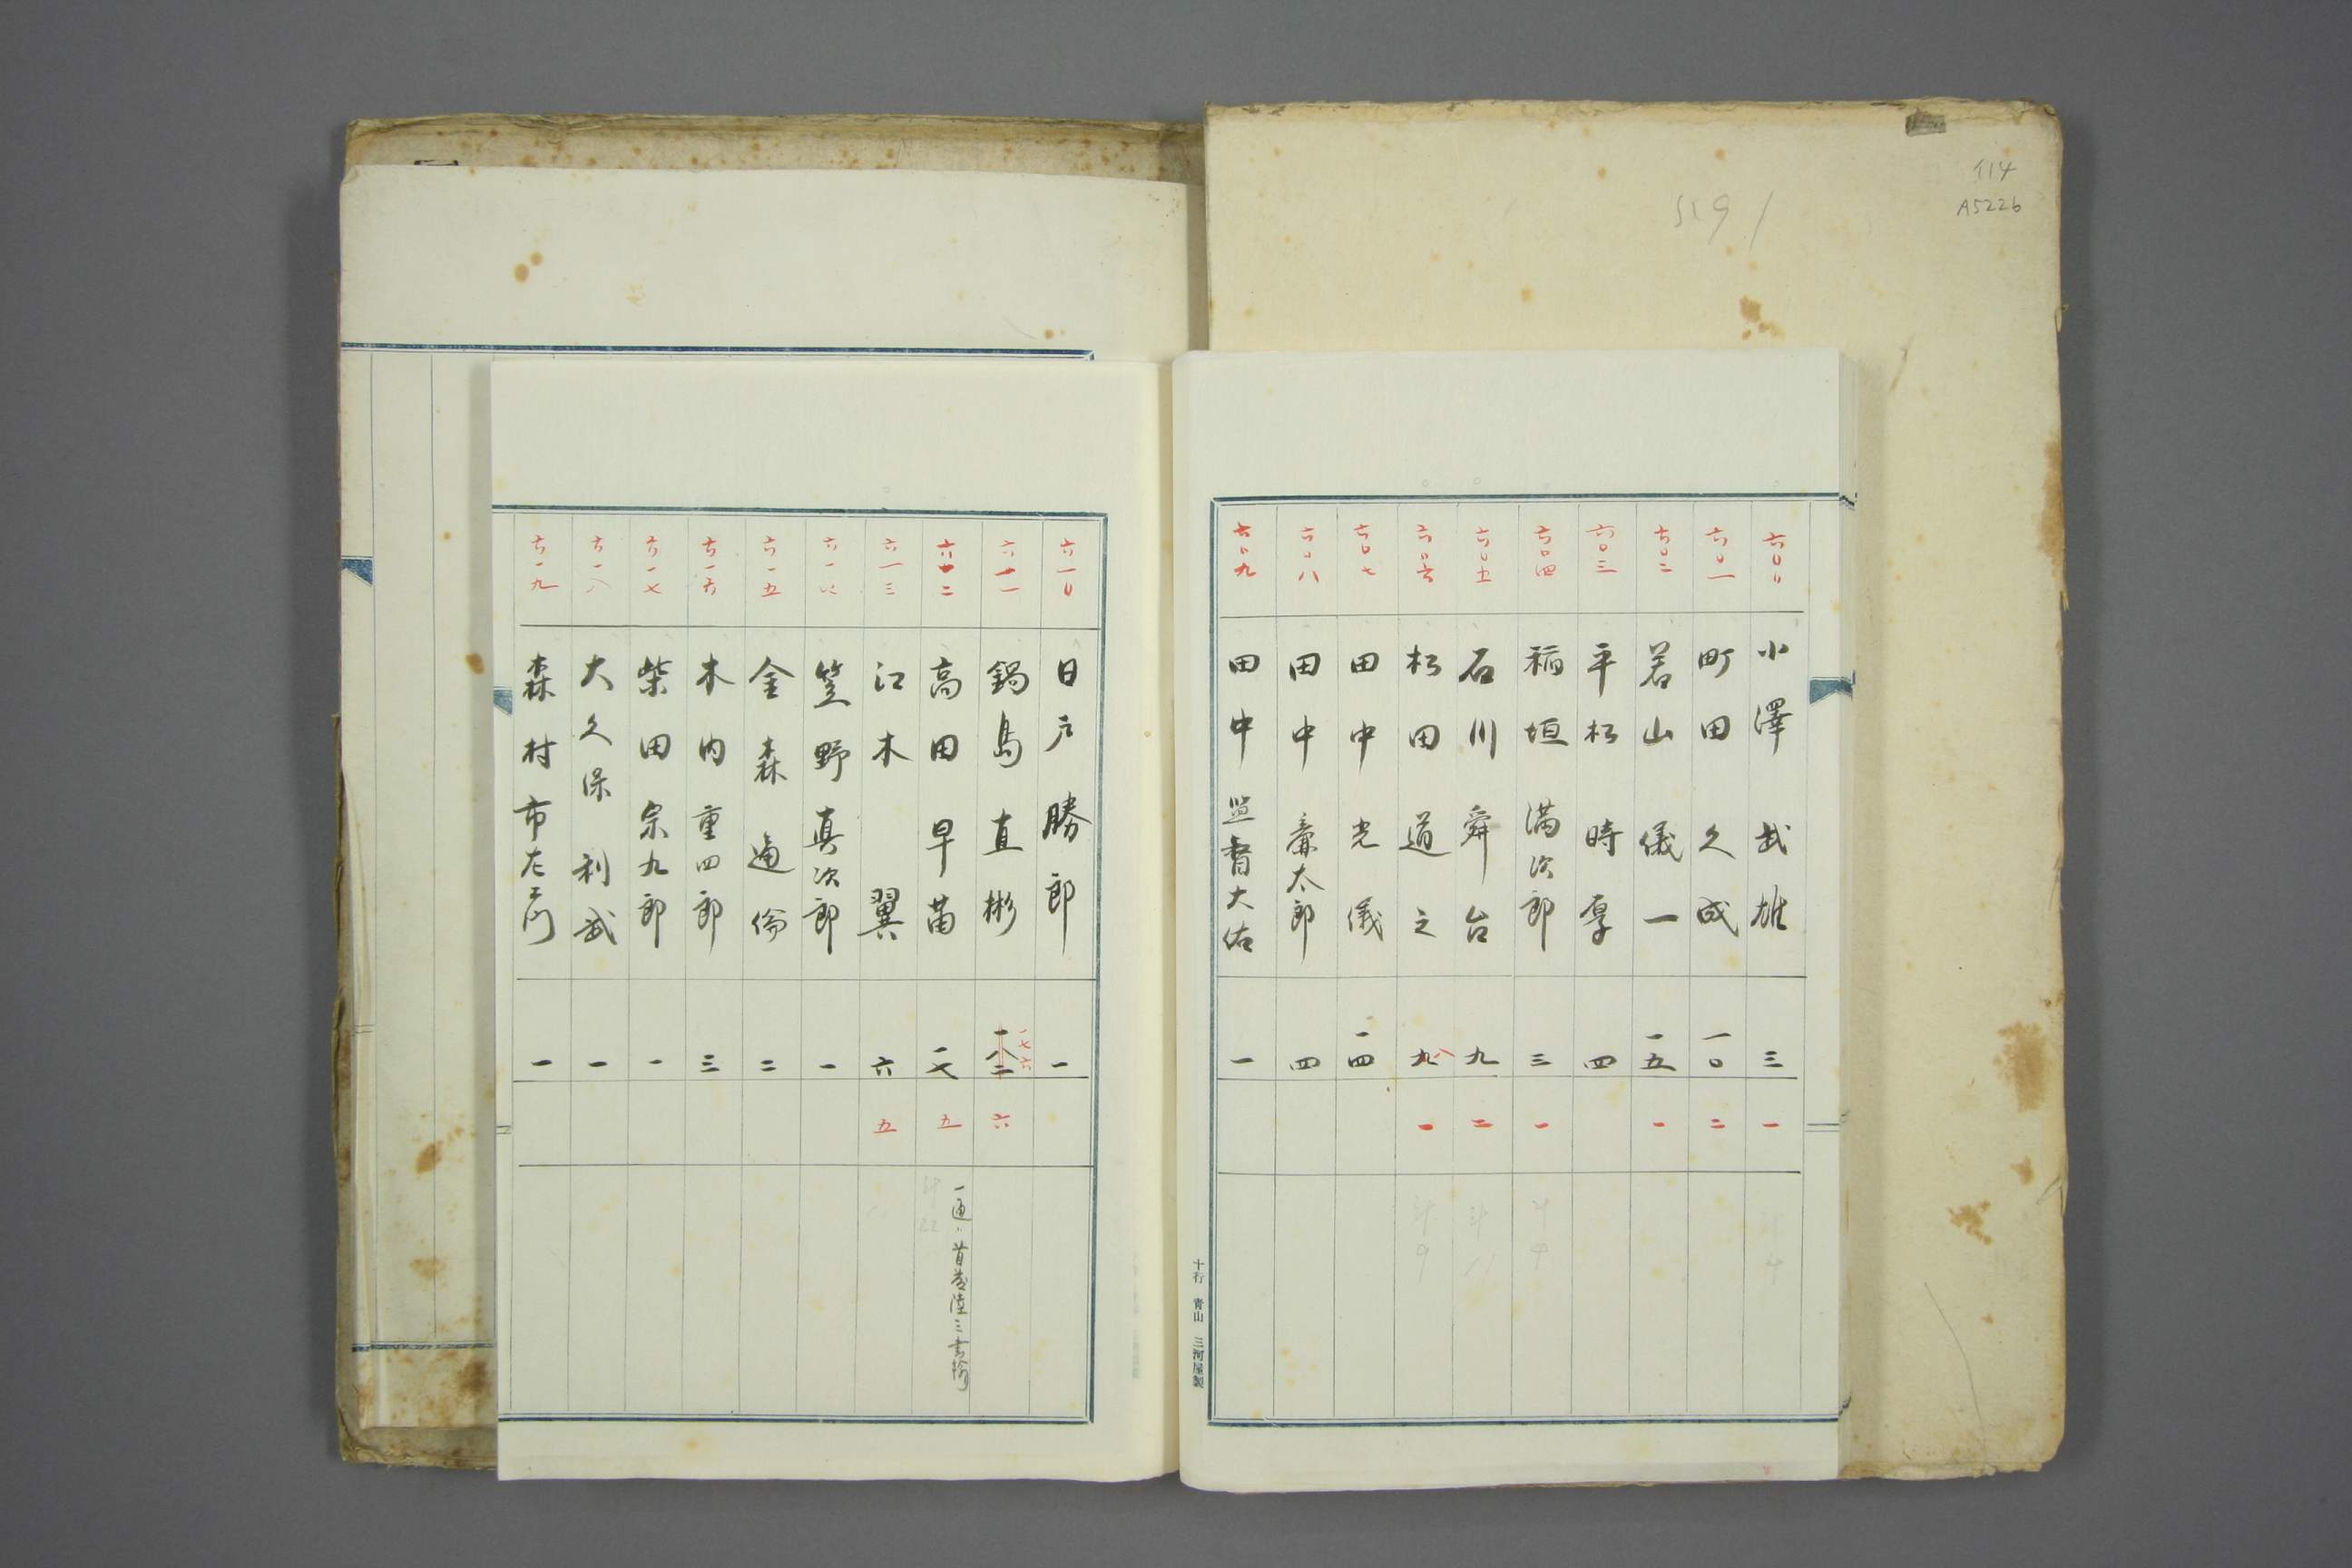 114
A5226
六〇〇 小澤武雄 三 一
六〇一 町田久成 一〇 二
六〇二 若山儀一 一五 一
六〇三 平松時厚 四
六〇四 稲垣満次郎 三 一
六〇五 石川舜台 九 二
六〇六 松田道之 九 八 一
六〇七 田中光儀 一四
六〇八 田中廉太郎 四
六〇九 田中監督大佑 一
十行 青山 三河屋製
六一〇 日戸勝郎 一
六一一 鍋島直彬 一七六 六
六一二 高田早苗 一七 五
六一三 江木翼 六 五
六一四 笠野真次郎 一
六一五 金森通倫 二
六一六 木内重四郎 三
六一七 柴田宗九郎 一
六一八 大久保利武 一
六一九 森村市左エ門 一